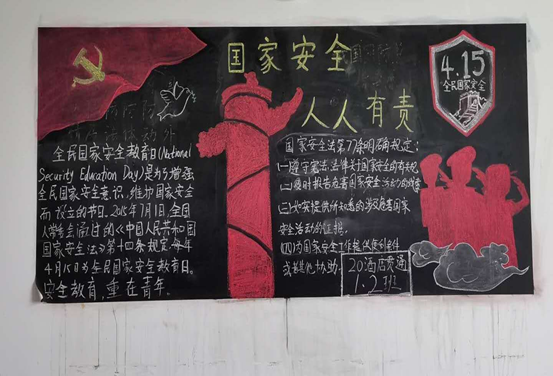 国家安全
人人有责
4.15
全民国家安全
全民国家安全教育日(National
Security Education Day)是为了增强
全民国家安全意识,维护国家安全
而设立的节日。2015年7月1日,全国
人大常委会通过的《中华人民共和国
国家安全法》第十四条规定,每年
4月15日为全民国家安全教育日。
安全教育,重在青年。
国家安全法第77条明确规定:
(一)遵守宪法、法律关于国家安全的有关规
(二)及时报告危害国家安全活动的线索
(三)如实提供所知悉的涉及危害国家
安全活动的证据
(四)为国家安全工作提供便利条件
或者其他协助。
20酒店贯通
1.2班